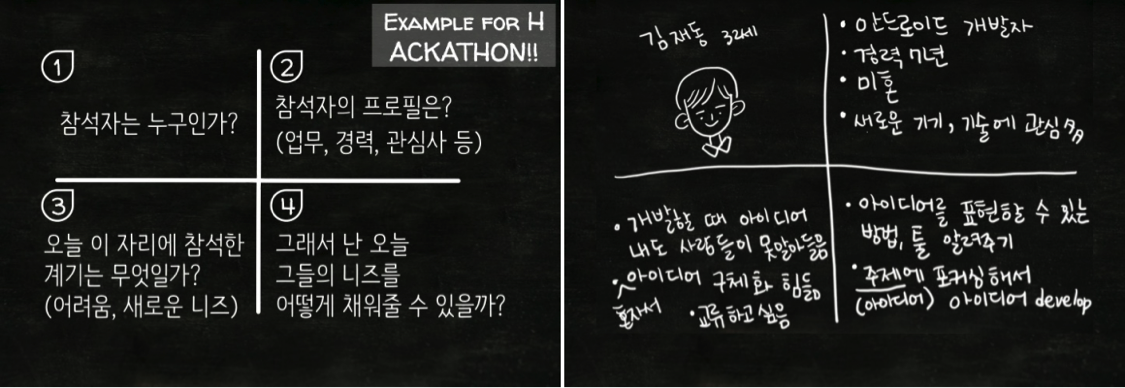 EXAMPLE FOR H
ACKATHON!!
1
참석자는 누구인가?
2
참석자의 프로필은?
(업무, 경력, 관심사 등)
3
오늘 이 자리에 참석한
계기는 무엇일까?
(어려움, 새로운 니즈)
4
그래서 난 오늘
그들의 니즈를
어떻게 채워줄 수 있을까?
김재동 32세
• 안드로이드 개발자
• 경력 7년
• 미혼
• 새로운 기기, 기술에 관심多
• 개발할 때 아이디어
내도 사람들이 못알아들음
• 아이디어 구체화 힘듦
혼자서 • 교류하고 싶음
• 아이디어를 표현할 수 있는
방법, 툴 알려주기
• 주제에 포커싱해서
(아이디어) 아이디어 develop